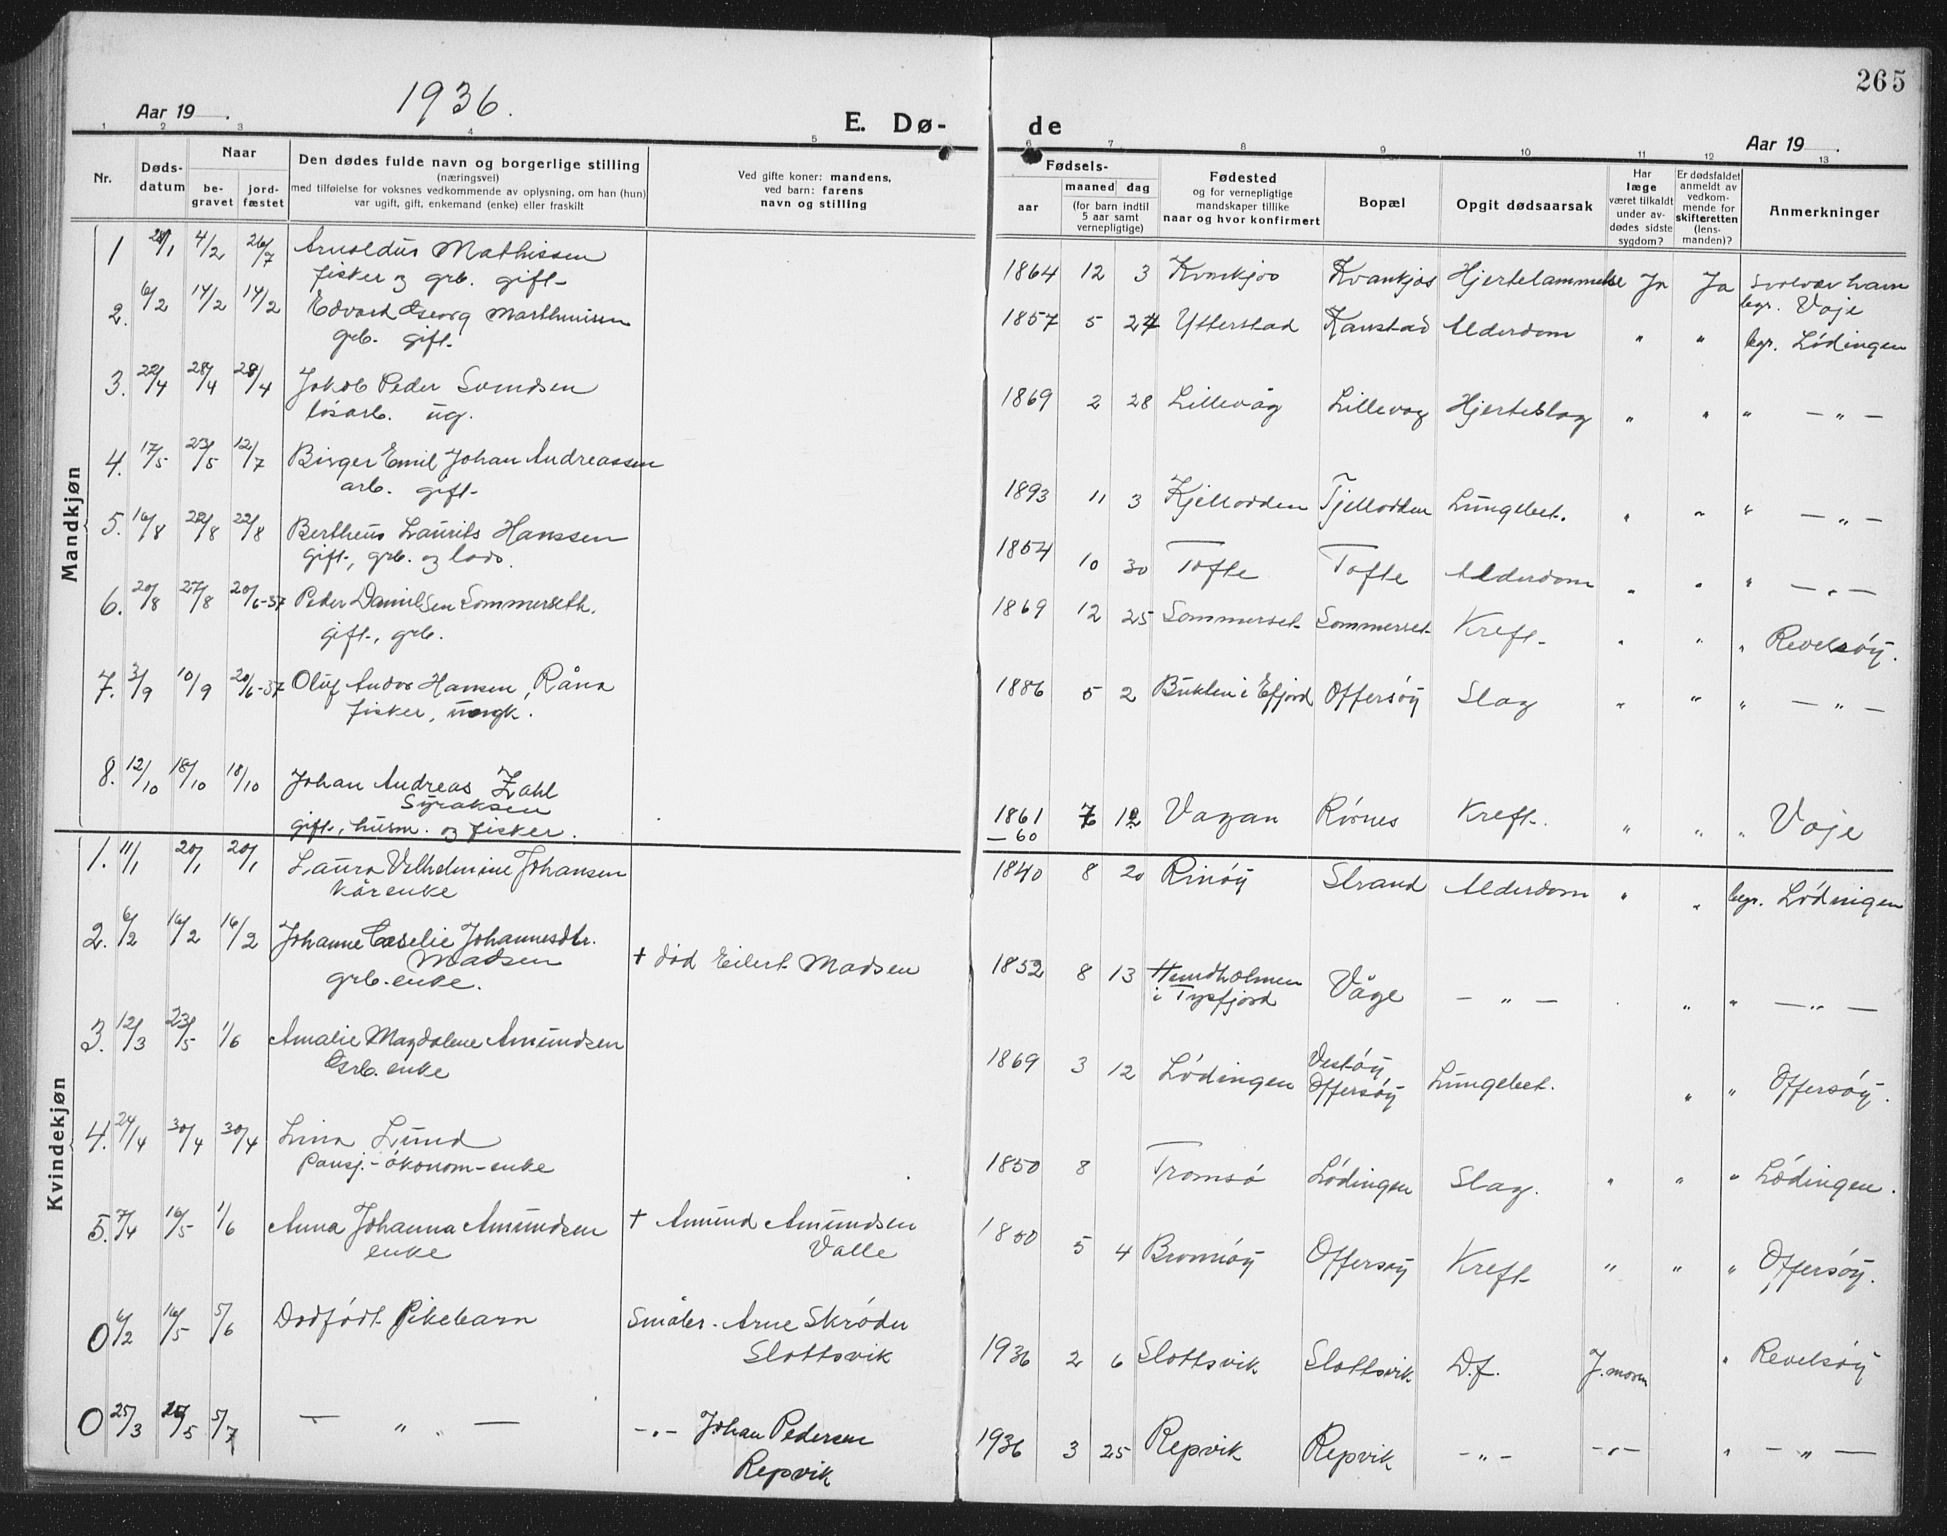 265
Aar 19 . 1936. E. Dø- de Aar 19 .
1 2 3 4 5 6 7 8 9 10 11 12 13
Nr. Døds-datum Naar be-gravet jord-fæstet
Den dødes fulde navn og borgerlige stilling
(næringsvei)
med tilføielse for voksnes vedkommende av oplysning, om han (hun)
var ugift, gift, enkemand (enke) eller fraskilt
Ved gifte koner: mandens,
ved barn: farens
navn og stilling
Fødsels-
aar maaned dag
(for barn indtil
5 aar samt
vernepligtige)
Fødested
og for vernepligtige
mandskaper tillike
naar og hvor konfirmert
Bopæl
Opgit dødsaarsak
Har
læge
været tilkaldt
under av-
dødes sidste
sygdom?
Er dødsfaldet
anmeldt av
vedkom-
mende for
skifteretten
(lens-
manden)?
Anmerkninger
Mandkjøn
1 /1 4/2 26/7 Arnoldus Mathissen 1864 12 3 Kvankjos Hjertelammelse Ja Ja Svolvær havn
fisker og grb. gift- begr. Voje
2. 6/2 14/2 14/2 Edvard Georg Marthinisen 1857 5 24 Ytterstad Kanstad Alderdom " " begr. Lødingen
grb. gift.
3. 22/4 28/4 28/4 Jakob Peder Svendsen 1869 2 28 Lillevåg Lillevåg Hjerteslag " " " — " —
løsarb. ug.
4. 17/5 23/5 12/7 Birger Emil Johan Andreassen 1893 11 3 Kjellodden Tjellodden Lungebet. " " " — " —
arb. gift-
5. 16/8 22/8 22/8 Bertheus Laurits Hanssen 1854 10 30 Tofte Tofte Alderdom " " " — " —
gift, grb. og lods.
6. 20/8 27/8 20/6-37 Peder Danielsen Sommerseth. 1869 12 25 Sommerset Sommerset Kreft- " " " Revelsøy.
gift, grb.
7. 3/9 10/9 20/6-37 Oluf Andor Hansen, Råna 1886 5 2 Buklen i Efjord Offersøy Slag " " " — " —
fisker, ungk.
8. 12/10 18/10 18/10 Johan Andreas Zahl
Syraksen
gift, husm. og fisker. 1861 7 12 Vagan Rörnes Kreft. " " " Voje
—60
Kvindekjøn
1. 11/1 20/1 20/1 Laura Vilhelmine Johansen 1840 8 20 Rinöy Strand Alderdom " " begr. Lödingen
kårenke
2. 6/2 16/2 16/2 Johanne Cæselie Johannesdtr.
Madsen + død Eilert Madsen 1852 8 13 Hundholmen
i Tysfjord Våge — " — " " — " —
grb. enke.
3. 12/3 23/5 1/6 Amalie Magdalene Amundsen 1869 3 12 Lödingen Vestöy,
Offersöy Lungebet. " " Offersöy.
Grb. enke
4. 24/4 30/4 30/4 Lina Lund 1850 8 Tromsø Lödingen Slag. " " " Lödingen.
pansj.-økonom-enke
5. 7/4 16/5 1/6 Anna Johanna Amundsen + Amund Amundsen 1850 5 4 Offersöy Kreft " " " Offersöy.
enke Valle
0 6/2 16/5 5/6 Dødfødt Pikebarn Småbr. Arne Skröder
Slottsvik 1936 2 6 Slottsvik Slottsvik D.f. J. moren " Revelsöy
0 25/3 /5 5/7 — " — -"- Johan Pedersen
Repvik 1936 3 25 Repvik Repvik -"- -"- " — " —